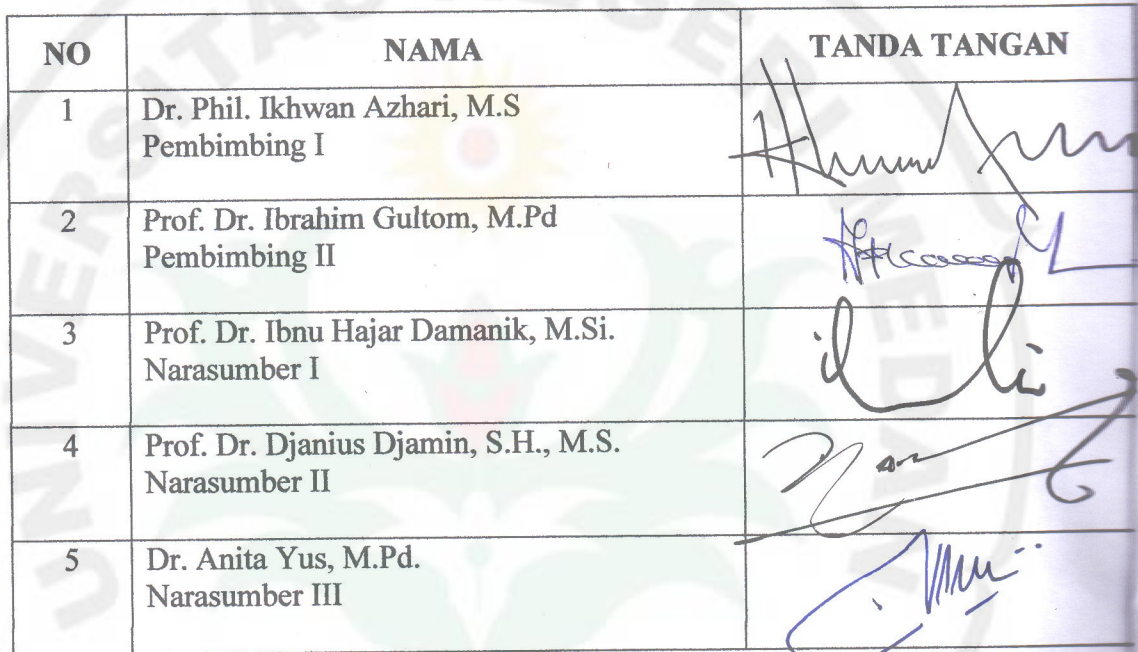 NO NAMA TANDA TANGAN
1 Dr. Phil. Ikhwan Azhari, M.S
Pembimbing I
2 Prof. Dr. Ibrahim Gultom, M.Pd
Pembimbing II
3 Prof. Dr. Ibnu Hajar Damanik, M.Si.
Narasumber I
4 Prof. Dr. Djanius Djamin, S.H., M.S.
Narasumber II
5 Dr. Anita Yus, M.Pd.
Narasumber III
UNIVERSITAS NEGERI MEDAN